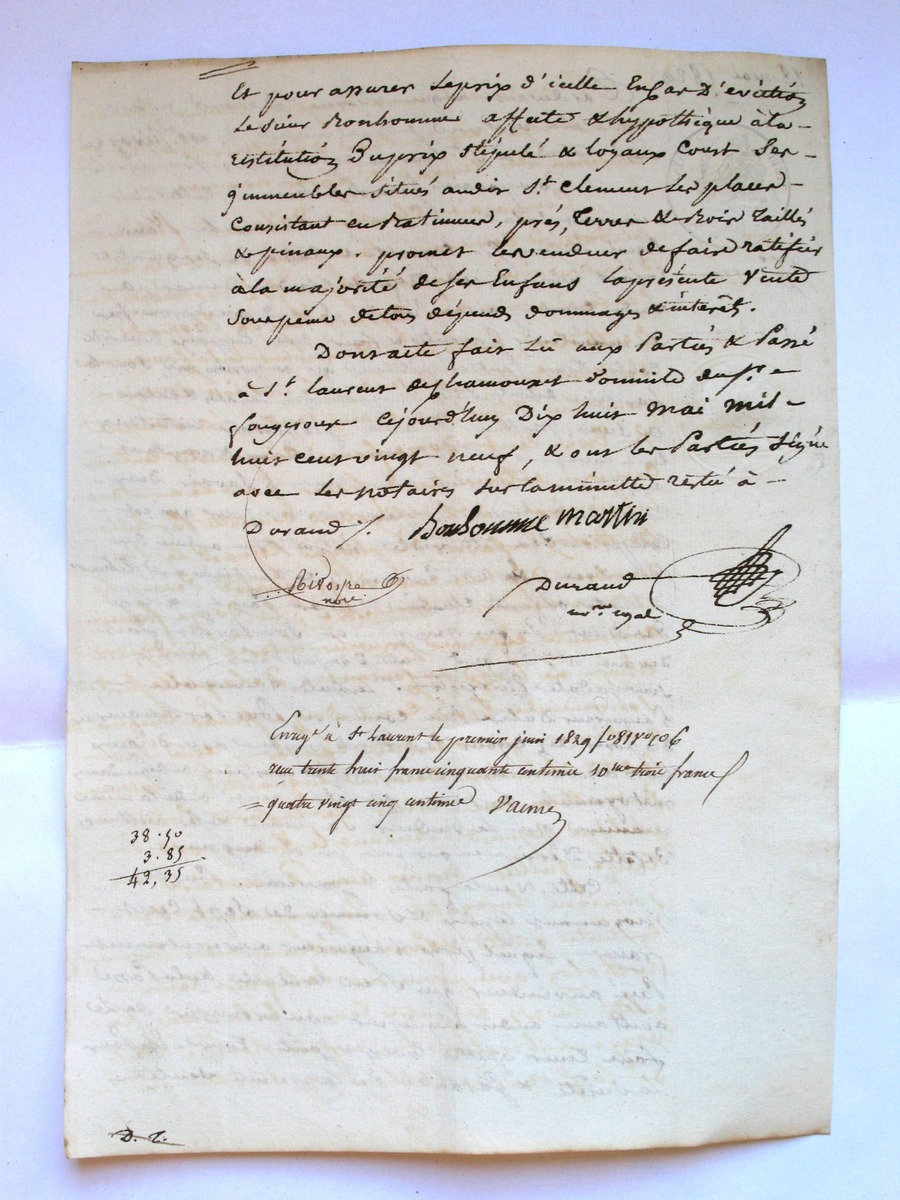 Et pour assurer le prix d'icelle En Cas D'eviction
Le sieur Bonhomme affecte & hypothèque à la
restitution Du prix stipulé & loyaux Cout Ses
immeubles situés audit St Clement Les places
Consistant en Batimens, prés, Terres & Bois Taillés
& pinaux. promet le vendeur de faire ratifier
à la majorité de ses Enfans la présente Vente
sous peine de tous dépends dommages & intérêt.
Dont acte fait Lu aux Parties & Passé
à St Laurent de Chamousset Domicile du Sr
fougeroux Cejourd'huy Dix huit mai mil
huit cent vingt neuf, & ont les Parties signé
avec Les notaires sur la minutte restée à
Durand /. Bonhomme Martin
nore.
Durand
nore royal
Enregé à St Laurent le premier juin 1829 fo 81 Vo Co 6
reçu trente huit francs cinquante centimes 10me trois francs
quatre vingt cinq centimes
38.50
3.85
42,35
D. T.